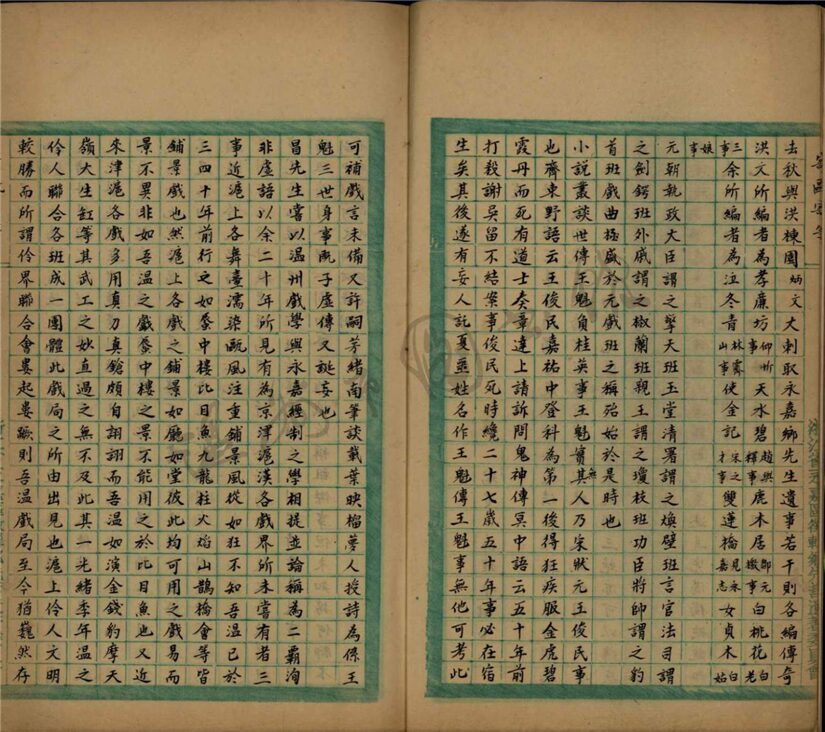 去秋與洪棟園炳文大刺取永嘉鄉先生遺事若干則各編傳奇
洪文所編者為孝廉坊仰忻事天水碧趙與檡事鹿木居鄒元檄事白桃花白老
三事余所編者為泣冬青林霽山事俠金記朱之才事雙蓮橋見永嘉志女貞木白姑
娘事
元朝執政大臣謂之擎天班玉堂清署謂之煥璧班言官法司謂
之劍鍔班外戚謂之椒蘭班親王謂之瓊枝班功臣將帥謂之豹
首班戲曲極盛於元戲班之稱殆始於是時也
小說叢談世傳王魁負桂英事王魁實無其人乃宋狀元王俊民事
也齊東野語云王俊民嘉祐中登科為第一後得狂疾服金虎碧
霞丹而死有道士奏章達上請訴問鬼神傳冥中語云五十年前
打殺謝吳留不結案事俊民死時纔二十七歲五十年事必在宿
生矣其後遂有妄人託夏噩姓名作王魁傳王魁事無他可考此
可補戲言未備又許嗣茅緒南筆談載葉映榴夢人授詩為係王
魁三世身事甌子虛傳又誕妄也
昌先生嘗以溫州戲學與永嘉經制之學相提並論稱為二霸洵
非虛語以余二十年所見有為京津滬漢各戲界所未嘗有者三
事近滬上各舞臺濡染甌風注重鋪景風從如狂不知吾溫已於
三四十年前行之如蜃中樓比目魚九龍柱火焰山鵲橋會等皆
鋪景戲也然滬上各戲之鋪景如廳如堂彼此均可用之戲易而
景不異非如吾溫之戲蜃中樓之景不能用之於比目魚也又近
來津滬各戲多用真刀真鎗頗自詡詡而吾溫如演金錢豹摩天
嶺大生缸等其武工之妙直過之無不及此其一光緒季年溫之
伶人聯合各班成一團體此戲局之所由出見也滬上伶人文明
較勝而所謂伶界聯合會婁起婁蹶則吾溫戲局至今猶巍然存